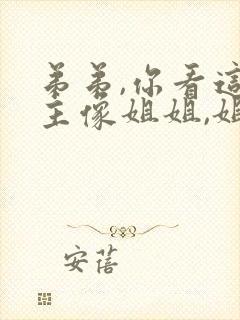 弟弟,你看這
主像姐姐,姐
安蓓